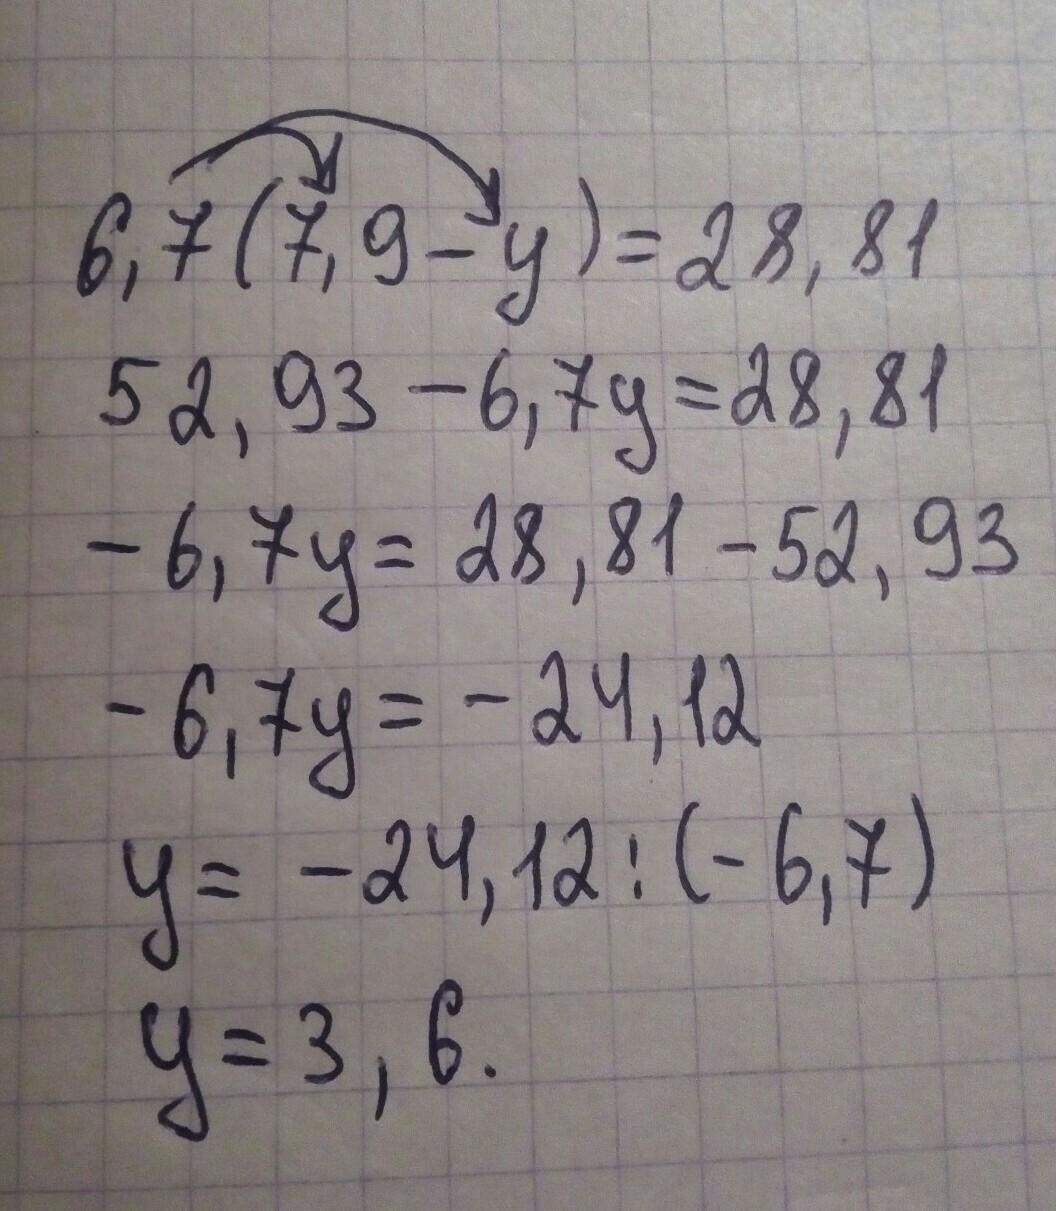 6,7(7,9-y)=28,81
52,93-6,7y=28,81
-6,7y=28,81-52,93
-6,7y=-24,12
y=-24,12:(-6,7)
y=3,6.